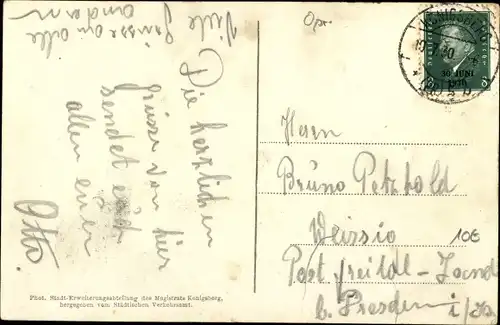 Viele
Grüsse an alle
andern
Die herzlichen
Grüsse von hier
sendet euch
allen euer
Otto.
Phot. Stadt-Erweiterungsabteilung des Magistrats Königsberg,
hergegeben vom Städtischen Verkehrsamt.
Opr.
KÖNIGSBERG
30. JUNI
1930
Herrn
Bruno Petzhold
Weissig
10€
Post Freital-Land
b. Dresden i/Sa